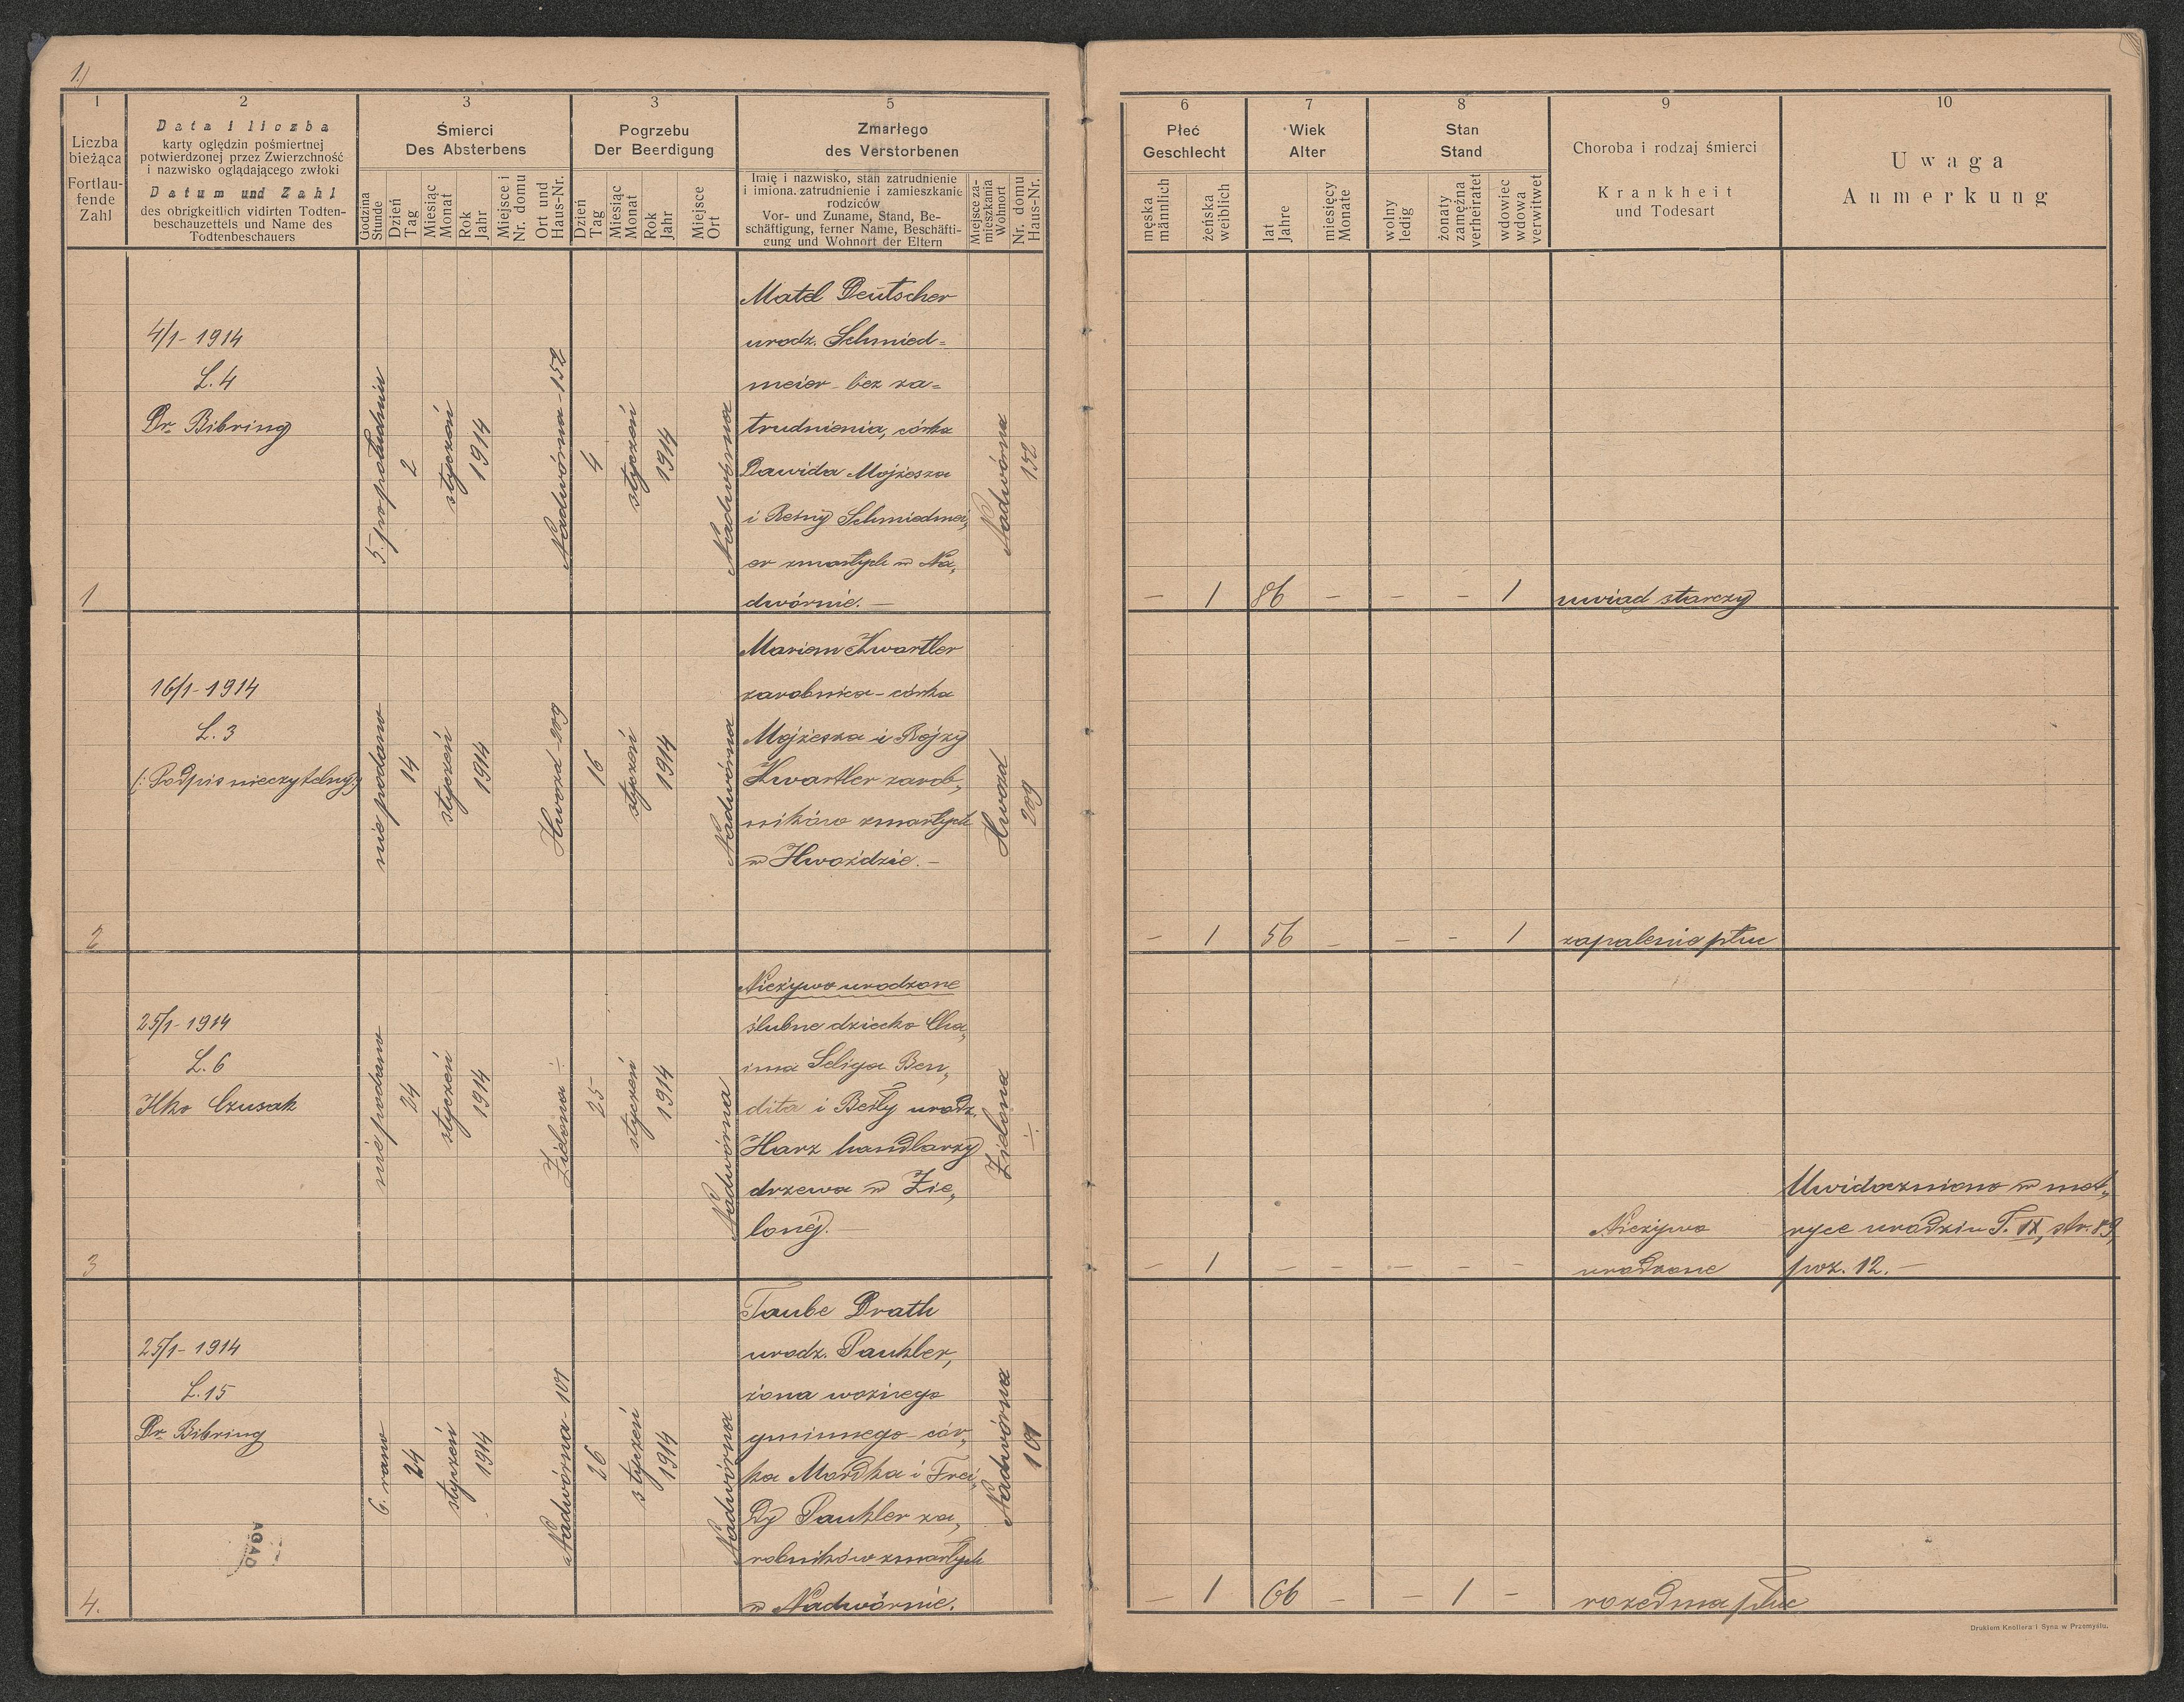 1.)
1
Liczba
bieżąca
Fortlau-
fende
Zahl
2
Data i liczba
karty oględzin pośmiertnej
potwierdzonej przez Zwierzchność
i nazwisko oglądającego zwłoki
Datum und Zahl
des obrigkeitlich vidirten Todten-
beschauzettels und Name des
Todtenbeschauers
3
Śmierci
Des Absterbens
Godzina
Stunde
Dzień
Tag
Miesiąc
Monat
Rok
Jahr
Miejsce i
Nr. domu
Ort und
Haus-Nr.
3
Pogrzebu
Der Beerdigung
Dzień
Tag
Miesiąc
Monat
Rok
Jahr
Miejsce
Ort
5
Zmarłego
des Verstorbenen
Imię i nazwisko, stan zatrudnienie
i imiona. zatrudnienie i zamieszkanie
rodziców
Vor- und Zuname, Stand, Be-
schäftigung, ferner Name, Beschäfti-
gung und Wohnort der Eltern
Miejsce za-
mieszkania
Wohnort
Nr. domu
Haus-Nr.
6
Płeć
Geschlecht
męska
männlich
żeńska
weiblich
7
Wiek
Alter
lat
Jahre
miesięcy
Monate
8
Stan
Stand
wolny
ledig
żonaty
zamężna
verheiratet
wdowiec
wdowa
verwitwet
9
Choroba i rodzaj śmierci
Krankheit
und Todesart
10
Uwaga
Anmerkung
1
4/1 - 1914
L. 4
Dr. Bibring
5. po południu
2
styczeń
1914
Nadwórna - 152
4
styczeń
1914
Nadwórna
Matel Deutscher
urodz. Schmied=
meier - bez za=
trudnienia, córka
Dawida Mojżesza
i Reśny Schmiedmei„
er zmarłych w Na„
dwórnie. —
Nadwórna
152
— 1 86 — — — 1 uwiąd starczy
2
16/1 - 1914
L. 3
(: Podpis nieczytelny:)
nie podano
14
styczeń
1914
Hwozd - 209
16
styczeń
1914
Nadwórna
Mariem Kwartler
zarobnica - córka
Mojżesza i Rojzy
Kwartler zarob„
ników zmarłych
w Hwoździe. —
Hwozd
209
— 1 56 — — — 1 zapalenie płuc
3
25/1 - 1914
L. 6
Ilko Czusak
nie podano
24
styczeń
1914
Zielona ÷
25
styczeń
1914
Nadwórna
Nieżywo urodzone
ślubne dziecko Cha„
ima Seliga Ben„
dita i Beily urodz.
Harz handlarzy
drzewa w Zie„
lonej. —
Zielona
÷
— 1 — — — — —
Nieżywo
urodzone
Uwidoczniono w met„
ryce urodzin T. IX, str. 89,
poz. 12. —
4.
25/1 - 1914
L. 15
Dr. Bibring
6. rano
24
styczeń
1914
Nadwórna - 101
26
styczeń
1914
Nadwórna
Taube Drath
urodz. Paukler,
żona woźnego
gminnego - cór„
ka Mordka i Frei„
dy Paukler za„
robników zmarłych
w Nadwórnie.
Nadwórna
101
— 1 66 — — 1 — rozedma płuc
AGAD
Drukiem Knollera i Syna w Przemyślu.